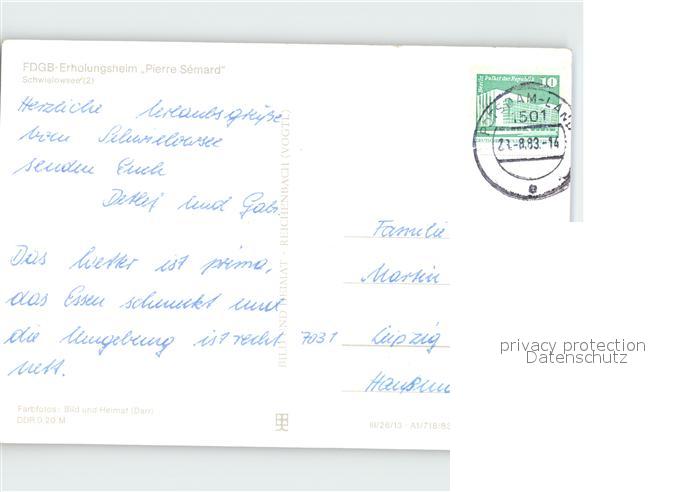 FDGB-Erholungsheim „Pierre Sémard"
Schwielowsee (2)
Herzliche Urlaubsgrüße
vom Schwielowsee
senden Euch
Detlef und Gabi.
Das Wetter ist prima,
das Essen schmeckt und
die Umgebung ist recht
nett.
Farbfotos: Bild und Heimat (Darr)
DDR 0,20 M
BILD UND HEIMAT · REICHENBACH (VOGTL)
III/26/13 · A1/718/83
Berlin Palast der Republik 10
POTSDAM-LAND
1501
-8.83.-14
e
Familie
Martin
7031 Leipzig
privacy protection
Datenschutz